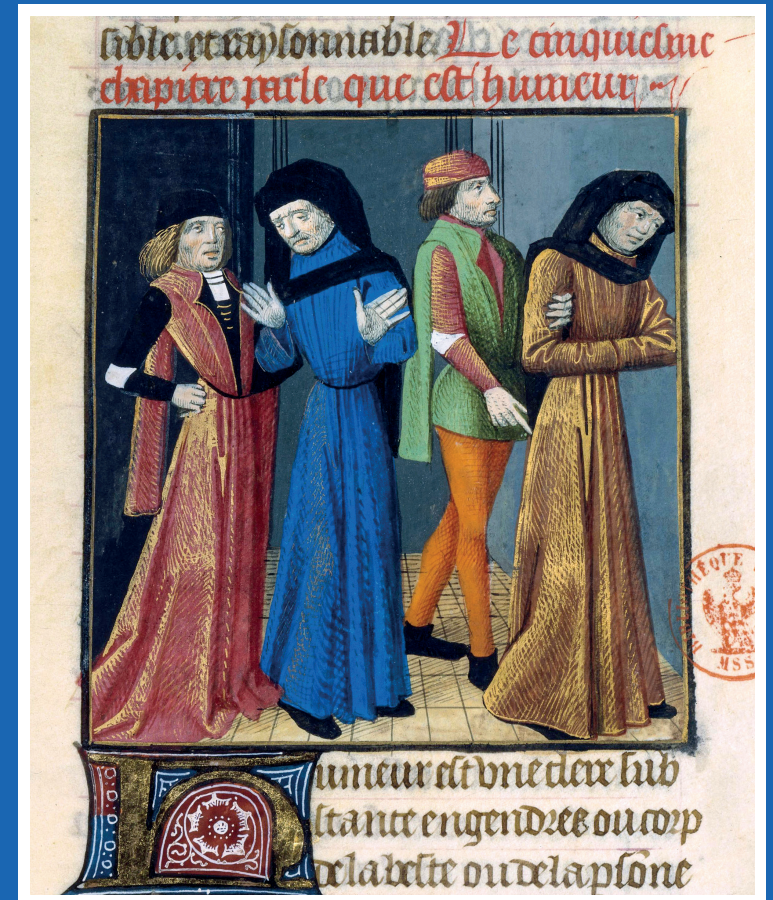 sible. et raysonnable. Le cinquiesme
chapitre parle que est humeur
Humeur est vne clere sub
stance engendree ou corp
de la beste ou de la psone
HÈQUE
MSS